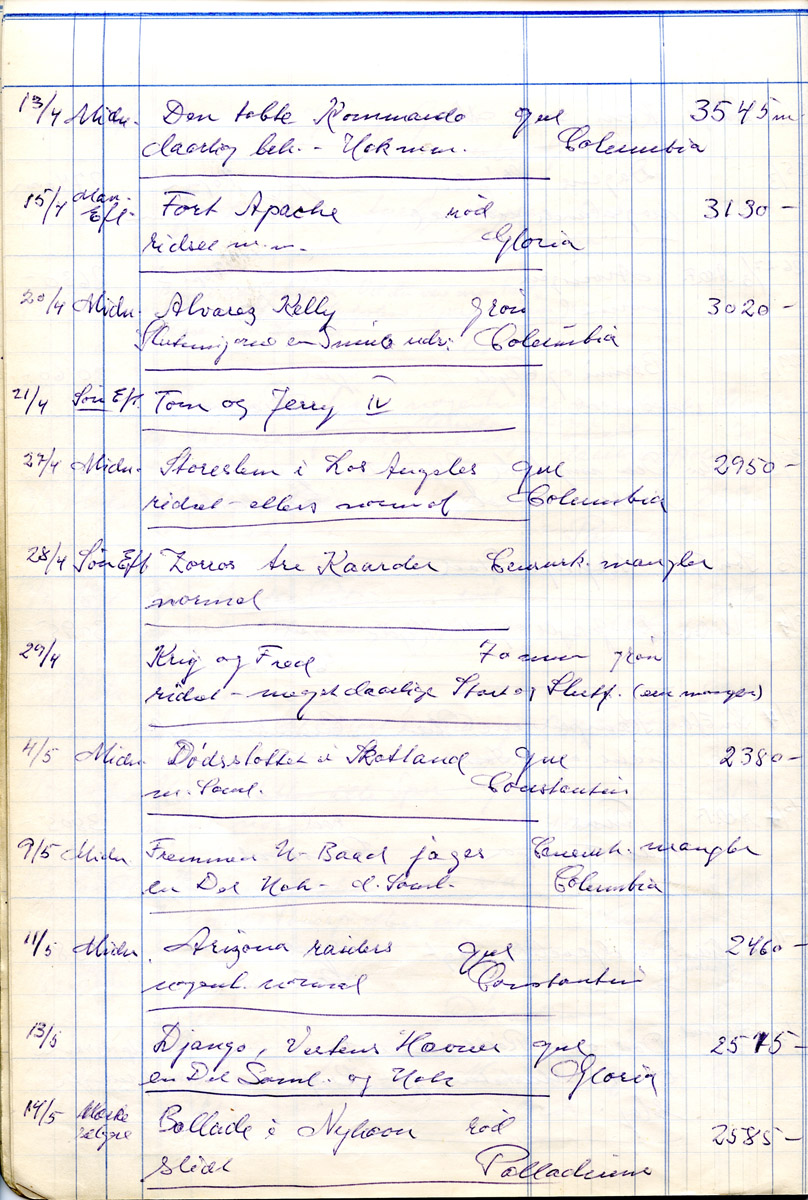 13/4 Midn. Den tabte Kommando gul 3545 m
daarlig beh. - Hak m.m. Columbia
15/4 Man. Eft. Fort Apache röd 3130 -
ridset m.m. Gloria
20/4 Midn. Alvarez Kelly grön 3020 -
Columbia
21/4 Søn Eft. Tom og Jerry IV
27/4 Midn. Storeslem i Los Angeles gul 2950 -
ridset - ellers normal Columbia
28/4 Søn Eft Zorros tre Kaarder Censurk. mangler
normal
29/4 Krig og Fred 70 mm grön
ridset - meget daarlige Start og Slutt. (een mangler)
4/5 Midn. Dödsslottet i Skotland gul 2380 -
m. Saml. Constantin
9/5 Midn Fremmed U-Baad jages Censurk. mangler
en Del Hak - d. Saml. Columbia
11/5 Midn. Arizona raiders gul 2460 -
normal Constantin
13/5 Django, Vestens Hævner gul 2575 -
en Del Saml. og Hak Gloria
14/5 Ballade i Nyhavn röd 2585 -
Slidt Palladium